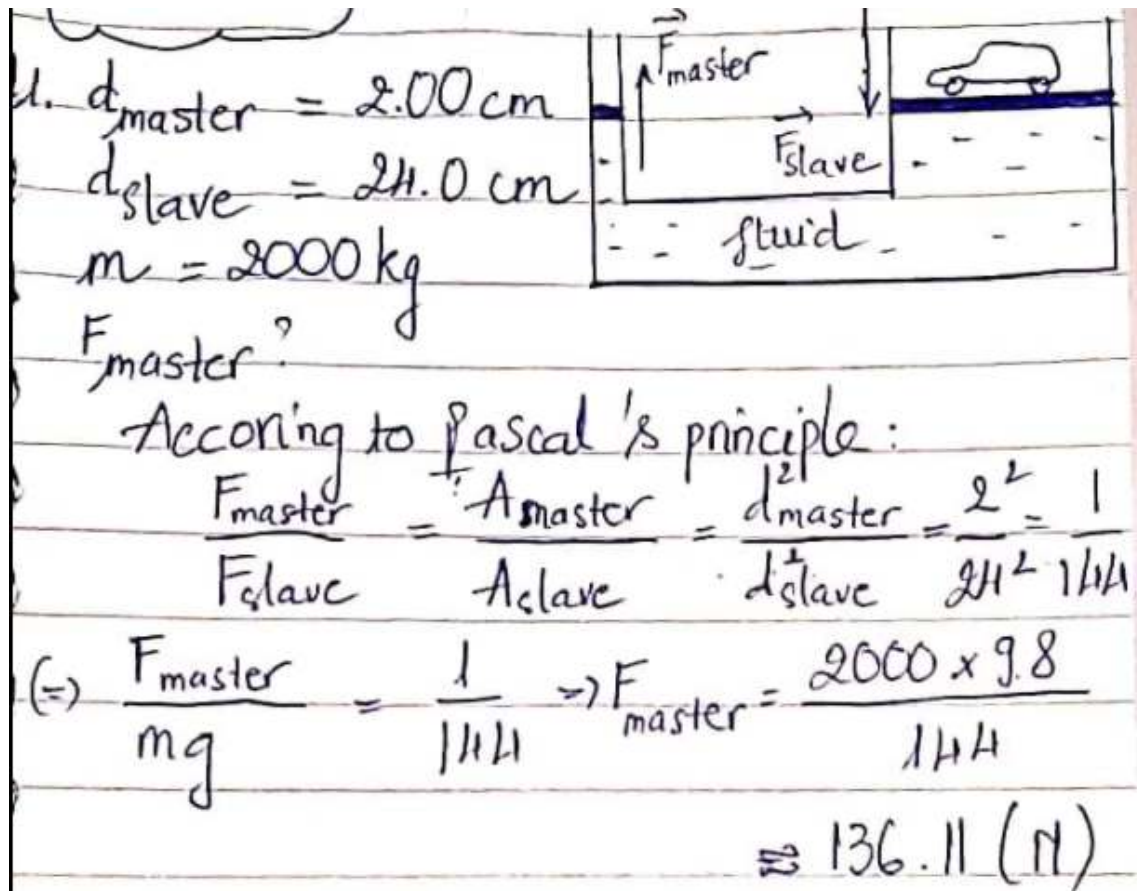 4. d_master = 2.00 cm
d_slave = 24.0 cm
m = 2000 kg
F_master?
F_master
F_slave
fluid
Accoring to Pascal's principle:
F_master / F_slave = A_master / A_slave = d²_master / d²_slave = 2² / 24² = 1 / 144
(=) F_master / mg = 1 / 144 => F_master = 2000 x 9.8 / 144
≈ 136.11 (N)